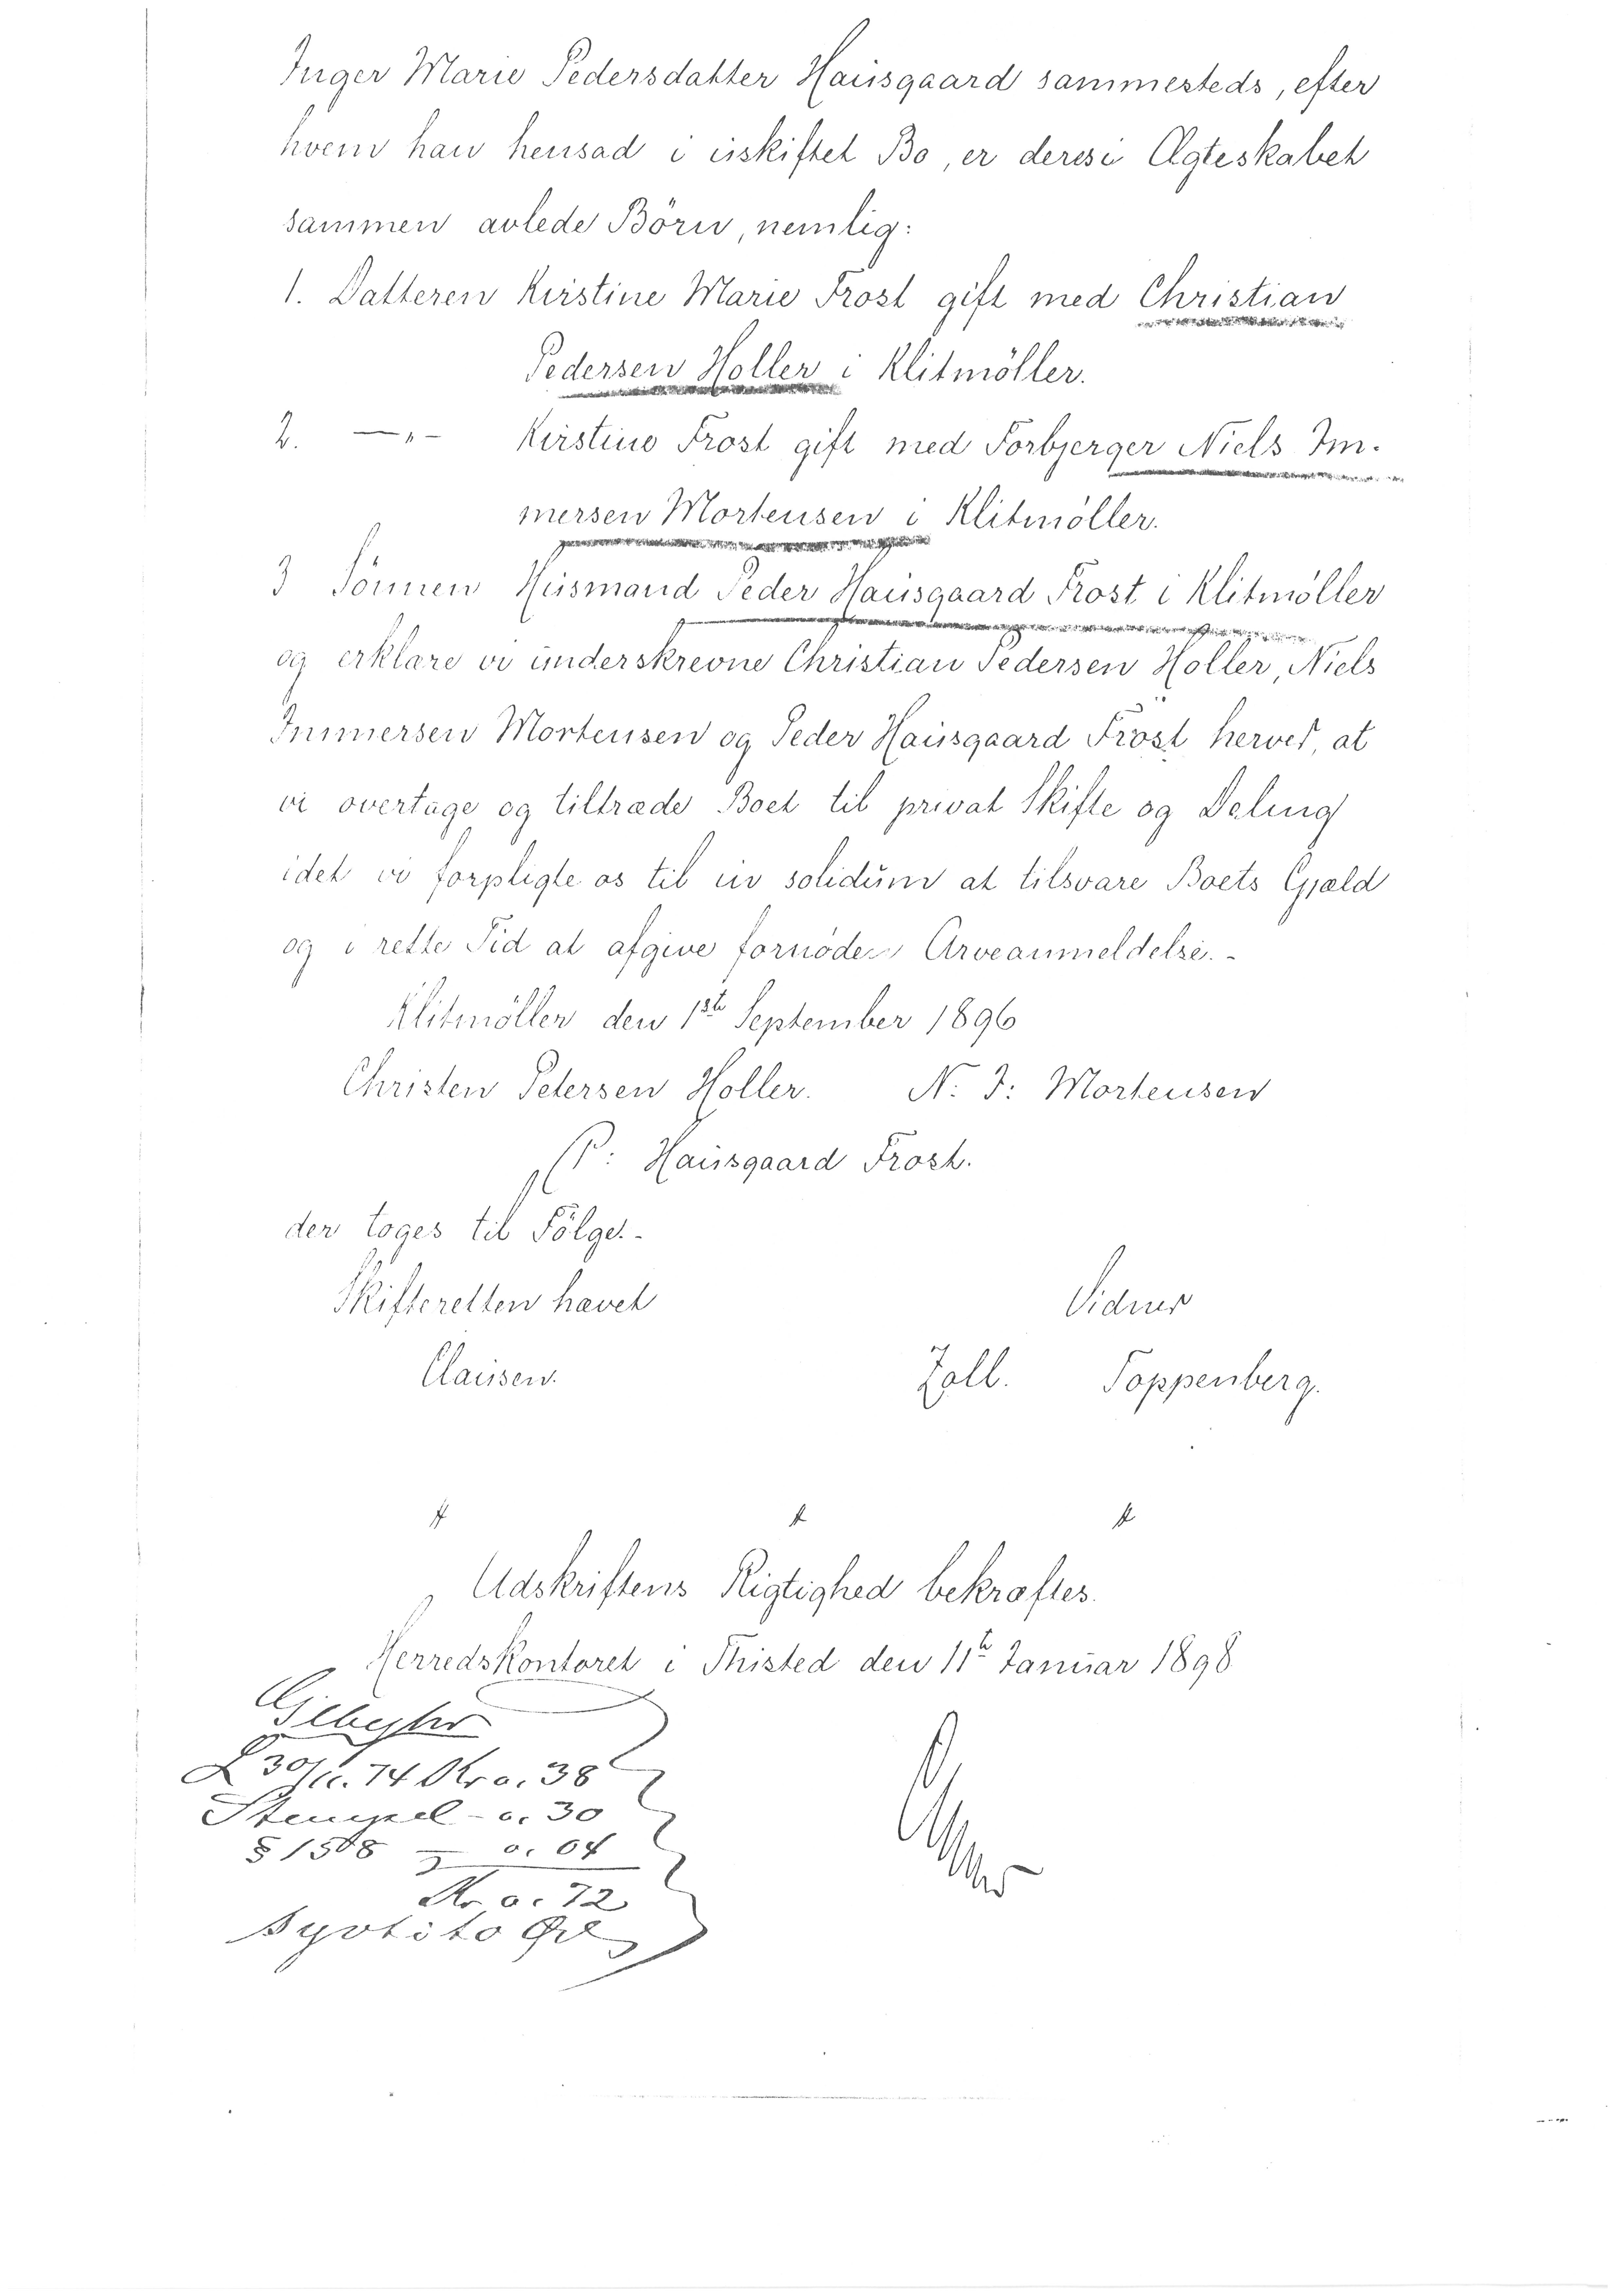 Inger Marie Pedersdatter Hausgaard sammesteds, efter
hvem han hensad i uskiftet Bo, er deres i Ægteskabet
sammen avlede Börn, nemlig:
1. Datteren Kirstine Marie Frost gift med Christian
Pedersen Holler i Klitmöller.
2. —„— Kirstine Frost gift med Forbjerger Niels Im-
mersen Mortensen i Klitmöller.
3 Sönnen Husmand Peder Hausgaard Frost i Klitmöller
og erklære vi underskrevne Christian Pedersen Holler, Niels
Immersen Mortensen og Peder Hausgaard Frost herved, at
vi overtage og tiltræde Boet til privat Skifte og Deling
idet vi forpligte os til in solidum at tilsvare Boets Gjæld
og i rette Tid at afgive fornöden Arveanmeldelse. -
Klitmöller den 1ste September 1896
Christen Petersen Holler. N. I: Mortensen
P: Hausgaard Frost.
der toges til Fölge. -
Skifteretten hævet
Clausen.
Vidner
Zoll. Poppenberg.
Udskriftens Rigtighed bekræftes.
Herredskontoret i Thisted den 11te Januar 1898
Gebyhr
L 30/11. 74 Kr 0. 38
Stempel - 0. 30
§ 1508 - 0. 04
Kr 0. 72